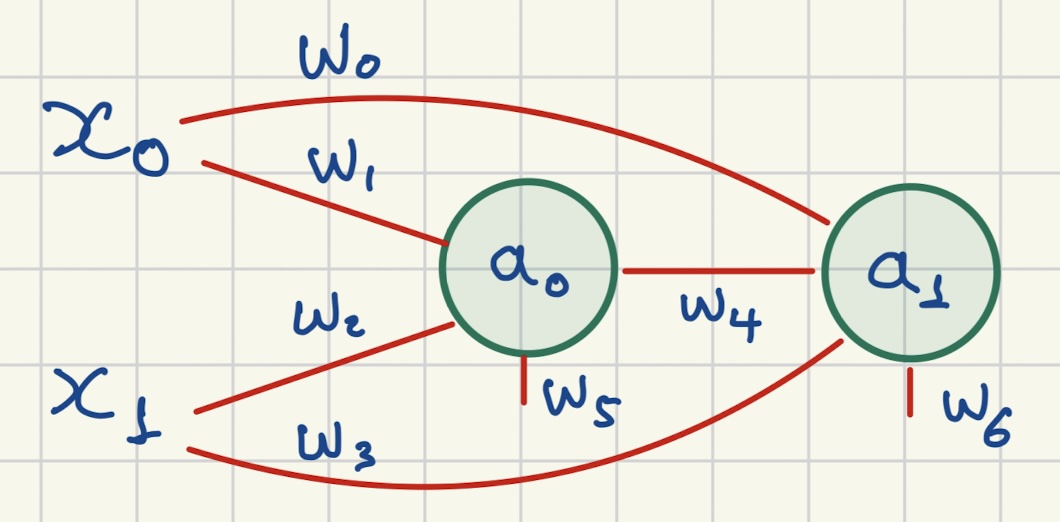 W₀
x₀
W₁
a₀
a₁
W₂
W₄
x₁
W₅
W₆
W₃